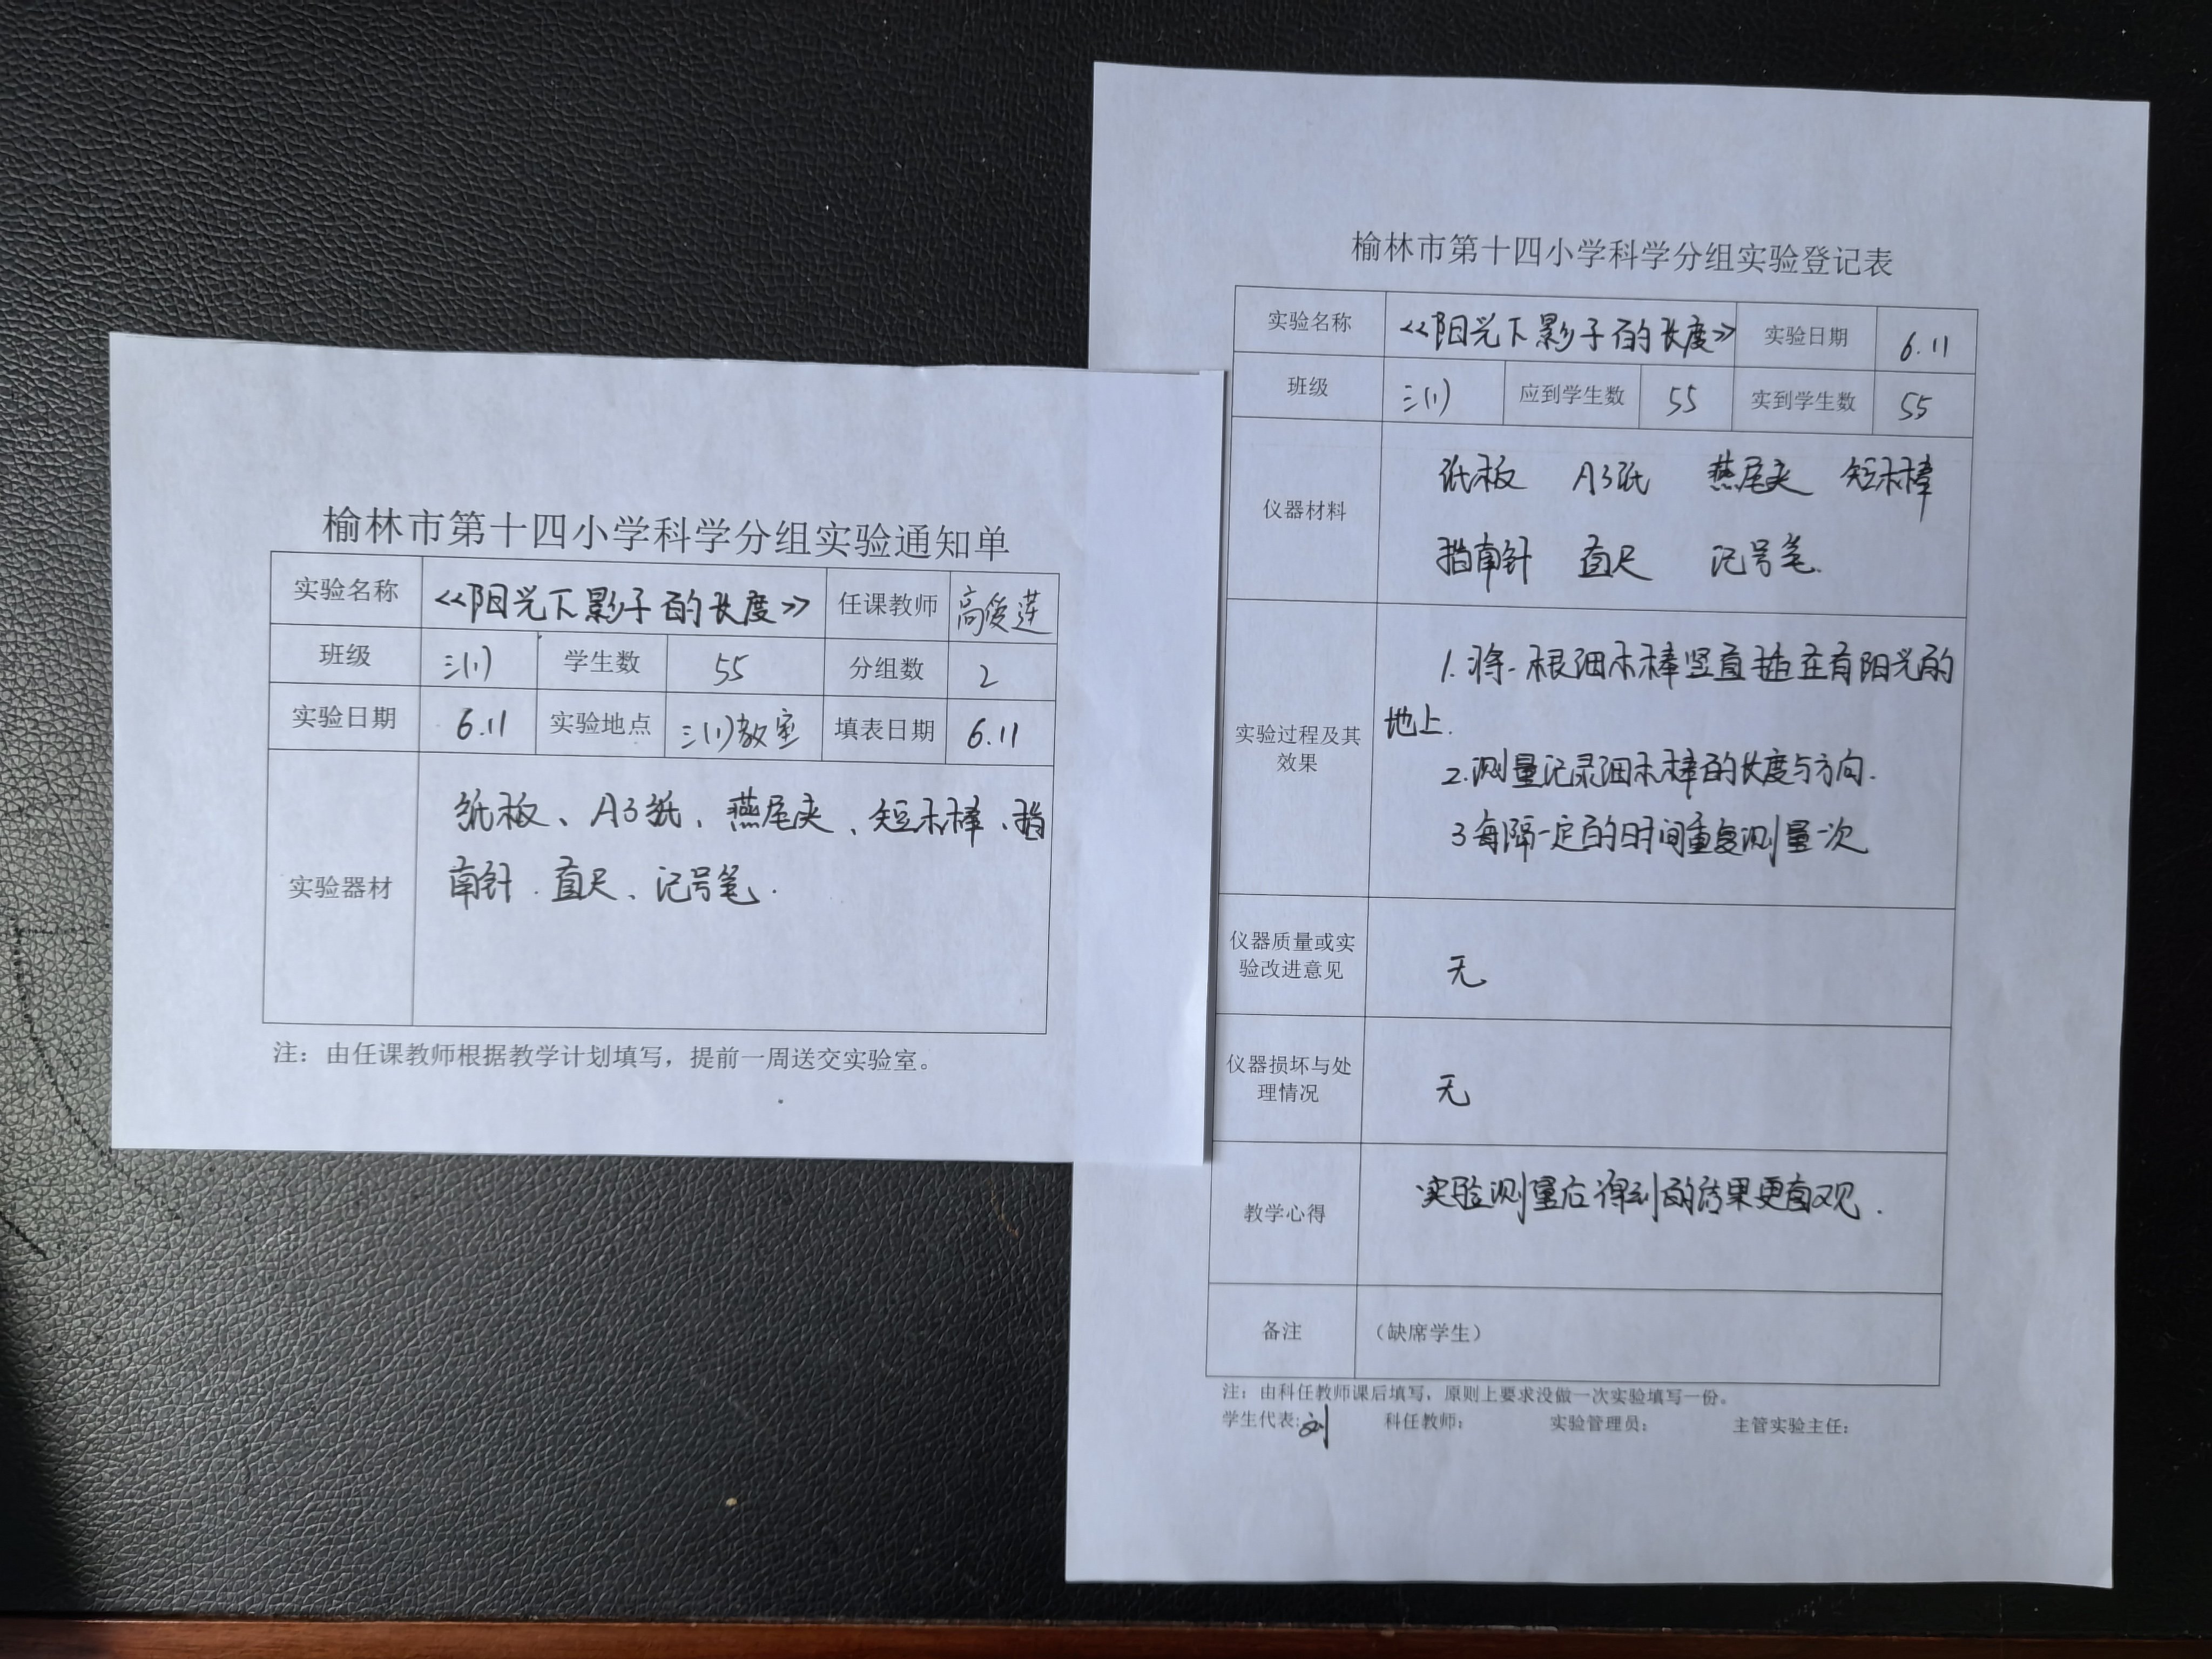 榆林市第十四小学科学分组实验通知单
实验名称 《阳光下影子的长度》 任课教师 高俊莲
班级 三(1) 学生数 55 分组数 2
实验日期 6.11 实验地点 三(1)教室 填表日期 6.11
实验器材
纸板、A3纸、燕尾夹、短木棒、指
南针、直尺、记号笔.
注：由任课教师根据教学计划填写，提前一周送交实验室。
榆林市第十四小学科学分组实验登记表
实验名称 《阳光下影子的长度》 实验日期 6.11
班级 三(1) 应到学生数 55 实到学生数 55
仪器材料
纸板 A3纸 燕尾夹 短木棒
指南针 直尺 记号笔.
实验过程及其
效果
1.将一根细木棒竖直插在有阳光的
地上.
2.测量记录细木棒的长度与方向.
3每隔一定的时间重复测量一次
仪器质量或实
验改进意见
无
仪器损坏与处
理情况
无
教学心得 实验测量后得到的结果更直观.
备注 （缺席学生）
注：由科任教师课后填写，原则上要求没做一次实验填写一份。
学生代表:刘 科任教师: 实验管理员: 主管实验主任: